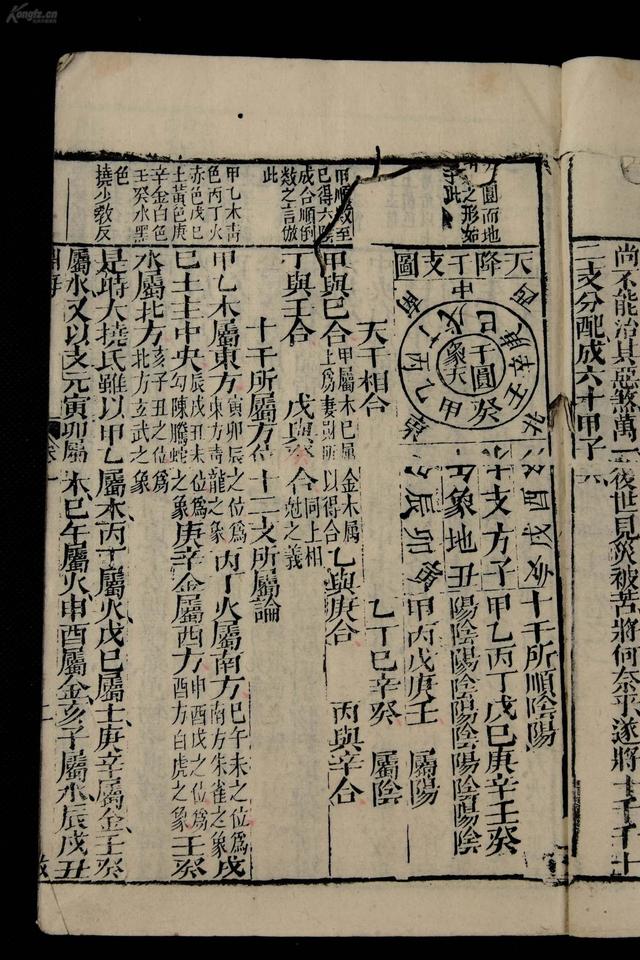 尚不能治其惡煞萬一後世見災被苦將何奈乎遂將十干十
二支分配成六十甲子
圓而地
之形如
此
天降干支圖
中
南
西
北
戊己
庚辛
壬癸
甲乙
丙丁
干圓
象天
十支方
象地
子丑
卯辰
酉戌亥
十干所順陰陽
甲乙丙丁戊己庚辛壬癸
陽陰陽陰陽陰陽陰陽陰
甲丙戊庚壬 屬陽
乙丁己辛癸 屬陰
天干相合
甲順數至
己得六
成合順倒
數之言倣
此
甲與己合甲屬木己屬土 金木屬 以得合 乙與庚合 丙與辛合
丁與壬合 戊與癸合同上相尅之義
十干所屬方位 十二支所屬論
甲乙木青
色丙丁火
赤色戊己
土黃色庚
辛金白色
壬癸水黑
色
撓少教反
甲乙木屬東方寅卯辰之位為東方青龍之象丙丁火屬南方巳午未之位為南方朱雀之象戊
己土主中央辰戌丑未位為勾陳騰蛇之象庚辛金屬西方申酉戌之位為西方白虎之象壬癸
水屬北方亥子丑之位為北方玄武之象
是時大撓氏雖以甲乙屬木丙丁屬火戊己屬土庚辛屬金壬癸
屬水又以支元寅卯屬木巳午屬火申酉屬金亥子屬水辰戌丑
淵海
卷一
二
Kongfz.cn